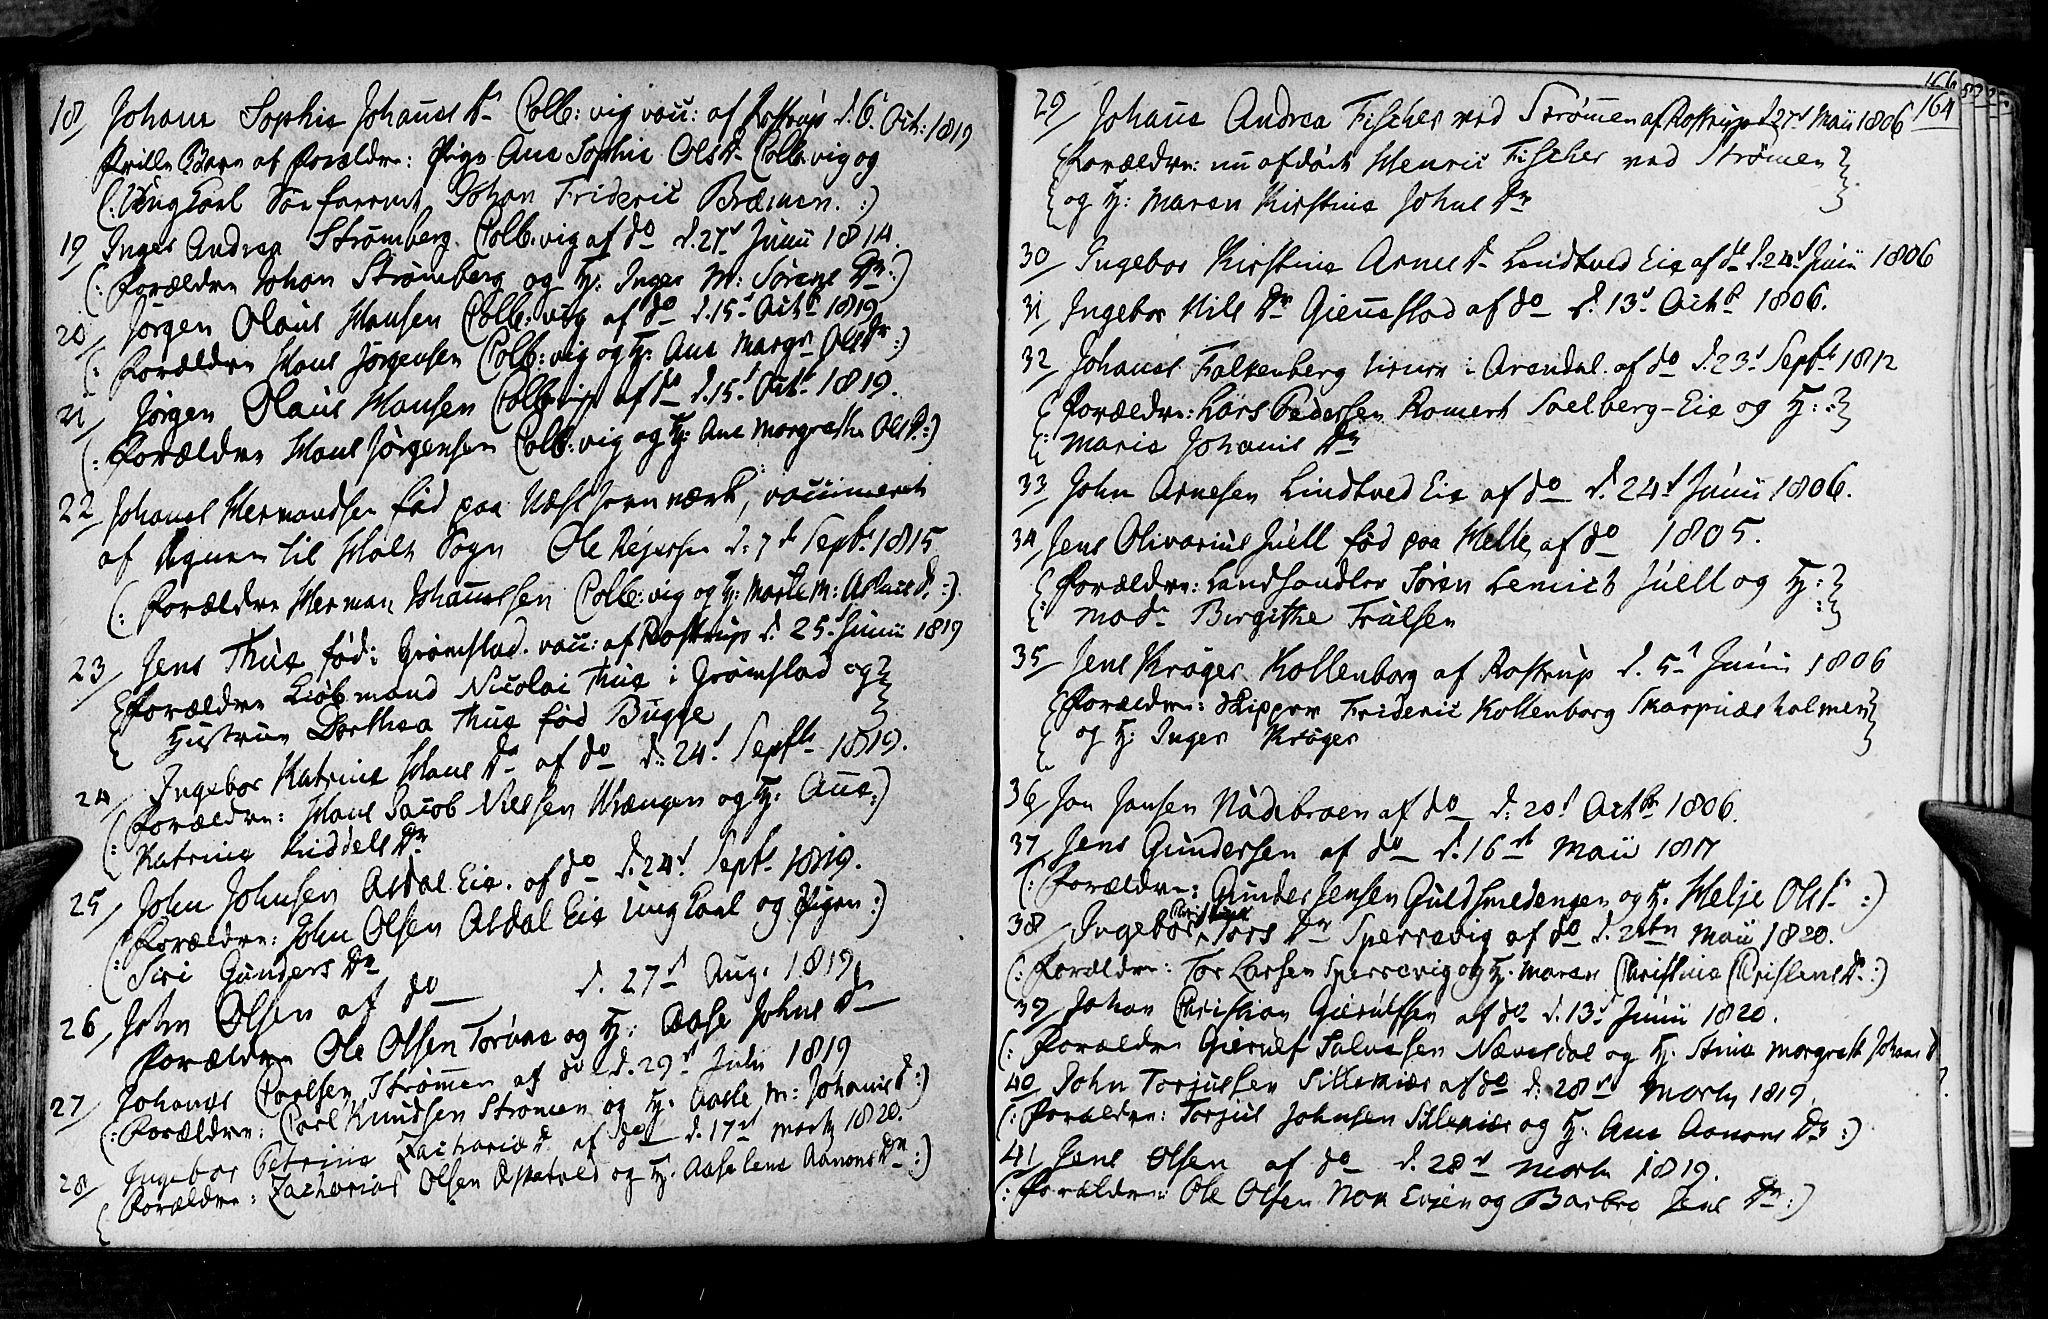 18/ Johane Sophie Johanes Dr Colb: vig vacc: af Rostrup d. 6. Oct: 1819
Forældre: Pige Ane Sophie Ols D. Colb: vig og
(: Ung Karl Søefarende Johan Frideric Bræmen. :)
19/ Inger Andrea Strømberg Colb: vig af do d. 27d Junii 1814.
(: Forældre Johan Strømberg og H: Inger M: Sørens Dr :)
20/ Jørgen Olaus Hansen Colb: vig af do d. 15d Octbr 1819
(: Forældre Hans Jørgensen Colb: vig og H: Ane Margr Ols Dr :)
21/ Jørgen Olaus Hansen Colb: vig af do d. 15d Octbr 1819.
(: Forældre Hans Jørgensen Colb: vig og H: Ane Margrethe Ols D. :)
22/ Johanes Hermandsen fød paa Næss Jernværk, vaccineret
af Egnen til Holt Sogn Ole Rejersen d. 7de Septbr 1815
(: Forældre Herman Johannessen Colb: vig og H: Marte M: Aslaus D. :)
23/ Jens Thue fød i Grømstad. vacc: af Rostrup d. 25d Junii 1819
Forældre Kiøbmand Nicolai Thue i Grømstad og
Hustrue Dorthea Thue fød Bugge
24/ Ingebor Katrine Hans Dr af do d. 24d Septbr 1819.
(: Forældre: Hans Jacob Nielsen Vrængen og H: Ane
Katrine Kiddels Dr :)
25/ John Johnsen Asdal Eie. af do d. 24d Septbr 1819.
(: Forældre: John Olsen Asdal Eie Ung Karl og Pigen
Siri Gunders Dr :)
26/ John Olsen af do d. 27d Aug. 1819
Forældre Ole Olsen Torune og H: Aase Johns Dr
27/ Johanes Carlsen Strømen af do d. 29d Julii 1819
(: Forældre: Carl Knudsen Strømen og H: Aasle M: Johanis D :)
28/ Ingebor Petrine Zacharie D. af do d. 17d Marts 1820.
(: Forældre: Zacharias Olsen og H: Aaselene Aanons Dr :)
164
29/ Johane Andrea Fischer ved Strømen af Rostrup d. 27d Maii 1806
Forældre: nu afdøde Henric Fischer ved Strømen
og H: Maren Kirstine Johns Dr
30/ Ingebor Kirstine Arnes D. Lindtved Eie af do d. 24d Junii 1806
31/ Ingebor Nils Dr Gieustad af do d. 13d Octbr 1806.
32/ Johanes Falkenberg i Arendal. af do d. 23d Septbr 1812
Forældre: Lars Pedersen Romert Solberg-Eie og H:
Marie Johanis Dr
33/ John Arnesen Lindtved Eie af do d. 24d Junii 1806.
34/ Jens Olivarius Juell fød paa Helle, af do 1805.
Forældre: Landhandler Søren Lemich Juell og H:
Mad. Birgithe Frulsen
35/ Jens Krøger Kollenborg af Rostrup d. 5d Junii 1806
Forældre: Skipper Frideric Kollenborg Skarpnæsholmen
og H: Inger Krøger
36/ Jon Jonsen Nædebroen af do d. 20d Octbr 1806.
37/ Jens Gundersen af do d. 16de Maii 1817
(: Forældre: Gunder Jensen Guldsmedengen og H. Helje Ols D. :)
38/ Ingebor Christine Tors Dr Sperrevig af do d. 2den Maii 1820.
(: Forældre: Tor Larsen Sperrevig og H. Maren Christine Christens D. :)
39/ Johan Christian Gierulfsen af do d. 13d Junii 1820.
(: Forældre Gierulf Salvesen Næversdal og H. Stine Margrethe Johans D
40/ John Torjussen Sillekiær af do d. 28de Marts 1819.
(: Forældre: Torjus Johnsen Sillekiær og H. Ane Aanons Dr :)
41/ Jens Olsen af do d. 28d Marts 1819.
(: Forældre: Ole Olsen og Barbro Jens Dr :)